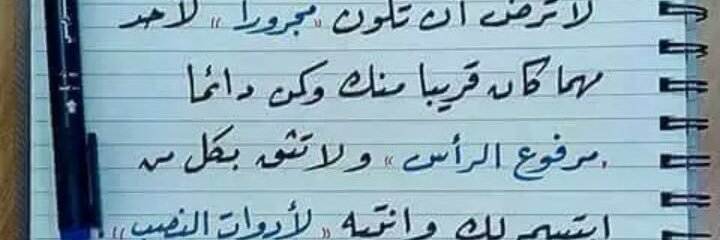 لا ترض أن تكون "مجرورا" لأحد
مهما كان قريبا منك وكن دائما
"مرفوع الرأس" ولا تثق بكل من
ابتسم لك وانتبه "لأدوات النصب"